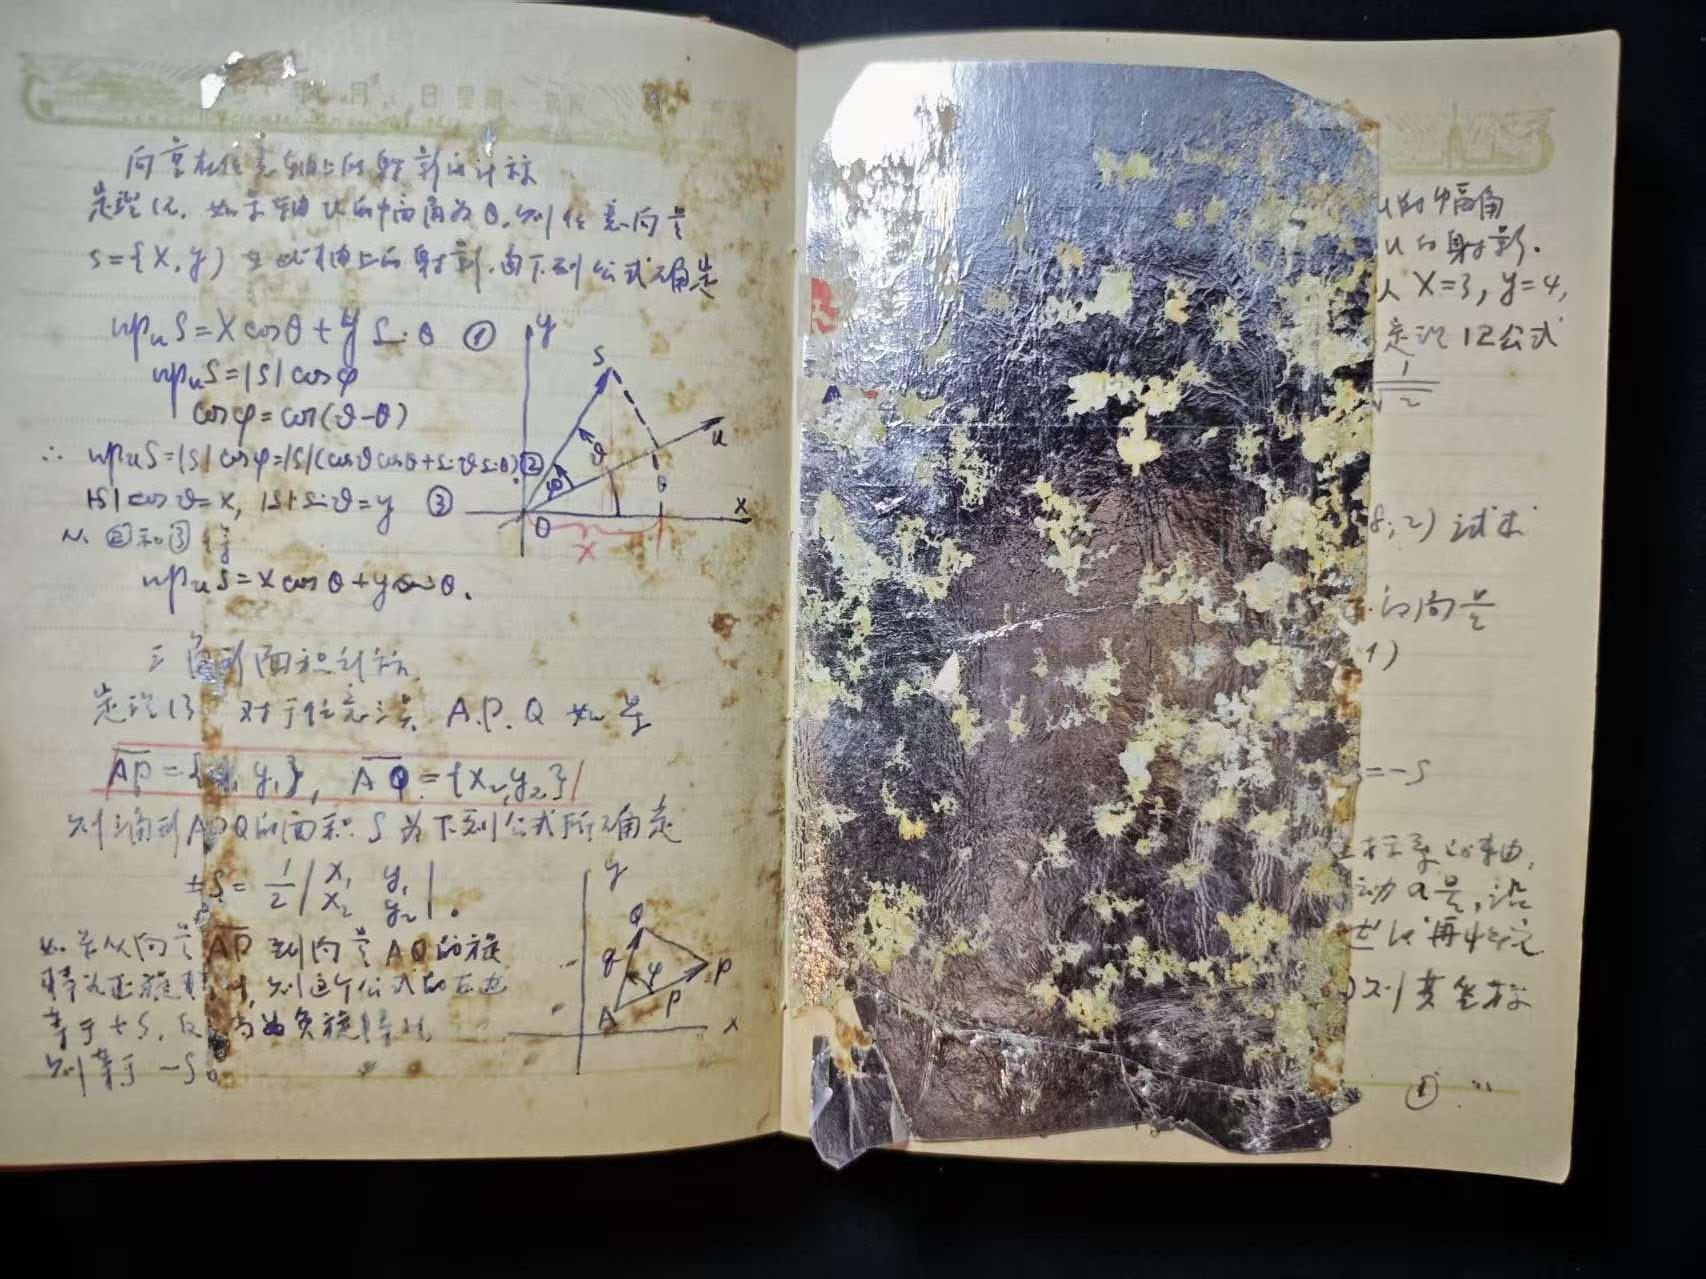 向量在任意轴上的射影的计标
定理12. 如果轴 u 的幅角为 θ, 则任意向量
s={X, y} 在此轴上的射影, 由下列公式确定
прᵤS=Xcosθ+ySinθ ①
прᵤS=|S|cosφ
cosφ=cos(ϑ-θ)
∴ прᵤS=|S|cosφ=|S|(cosϑcosθ+sinϑsinθ) ②
|S|cosϑ=x, |S|sinϑ=y ③
从②和③得
прᵤS=xcosθ+ysinθ.
y
S
u
ϑ
φ
O
x
X
三角形面积计标
定理13 对于任意三点 A.P.Q 如果
AP={x₁, y₁}, AQ={x₂, y₂}
则三角形APQ的面积 S 为下列公式所确定
±S= 1/2 |x₁ y₁
x₂ y₂|.
如果从向量AP到向量AQ的旋
转为正旋转时, 则这个公式的右边
等于+S, 反之为负旋转时,
则等于-S。
y
Q
q
φ
P
p
A
x
u的幅角
u的射影.
X=3, y=4,
定理12公式
1
√2
8;2) 试求
的向量
1)
=-S
标系的轴,
动a量, 沿
再
则其坐标
①